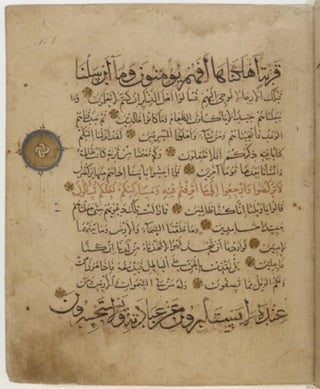 قرية اهلكناها افهم يؤمنون وما ارسلنا
قبلك الا رجالا نوحي اليهم فسئلوا اهل الذكر ان كنتم لا تعلمون وما
جعلناهم جسدا لا ياكلون الطعام وما كانوا خالدين ثم صدقناهم
الوعد فانجيناهم ومن نشاء واهلكنا المسرفين لقد انزلنا اليكم
كتابا فيه ذكركم افلا تعقلون وكم قصمنا من قرية كانت ظالمة
وانشأنا بعدها قوما اخرين فلما احسوا باسنا اذا هم منها يركضون
لا تركضوا وارجعوا الى ما اترفتم فيه ومساكنكم لعلكم تسئلون
قالوا يا ويلنا انا كنا ظالمين فما زالت تلك دعويهم حتى جعلناهم
حصيدا خامدين وما خلقنا السماء والارض وما بينهما
لاعبين لو اردنا ان نتخذ لهوا لاتخذناه من لدنا ان كنا
فاعلين بل نقذف بالحق على الباطل فيدمغه فاذا هو زاهق
ولكم الويل مما تصفون وله من في السموات والارض ومن
عنده لا يستكبرون عن عبادته ولا يستحسرون